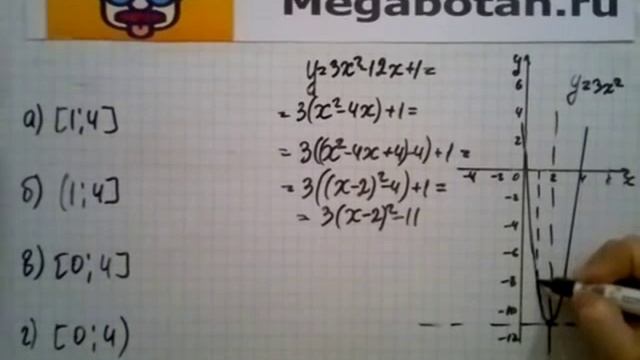 Megabotan.ru
y=3x²-12x+1=
= 3(x²-4x)+1=
= 3((x²-4x+4)-4)+1=
= 3((x-2)²-4)+1=
= 3(x-2)²-11
а) [1;4]
б) (1;4]
в) [0;4]
г) [0;4)
y
y=3x²
6
4
2
-4 -2 0 2 4 x
-2
-4
-6
-8
-10
-12